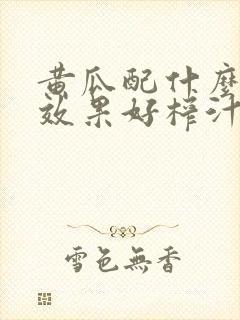 黄瓜配什麼
效果好榨汁
雪色無香